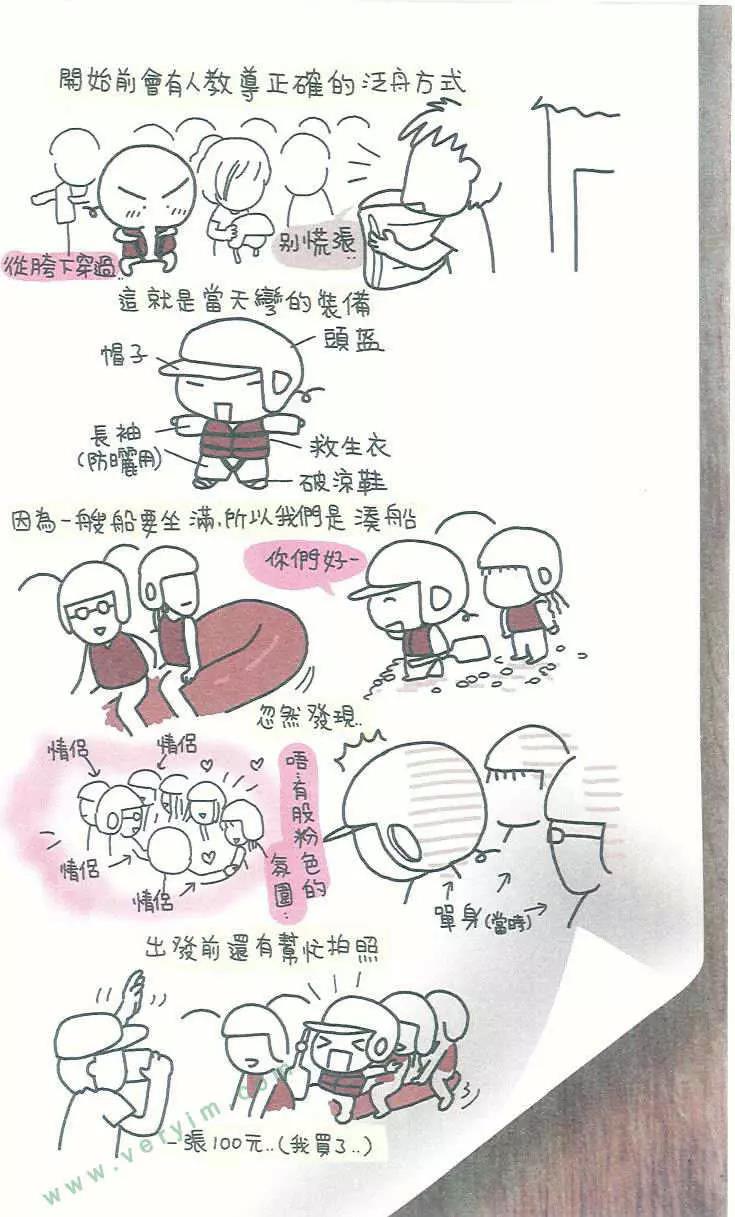 開始前會有人教導正確的泛舟方式
別慌張..
從胯下穿過..
這就是當天彎的裝備
頭盔
帽子
長袖
(防曬用)
救生衣
破涼鞋
因為一艘船要坐滿.所以我們是湊船
你們好~
忽然發現..
情侶
情侶
情侶
情侶
唔有股粉色的
氛圍..
單身(當時)
出發前還有幫忙拍照
一張100元..(我買了..)
www.veryim.com